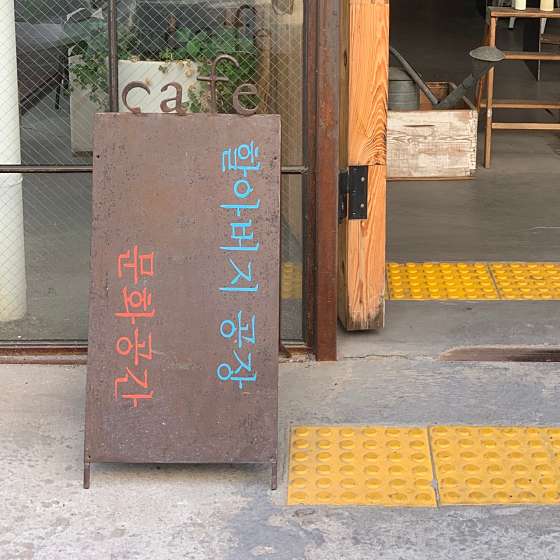 cafe
할아버지 공장
문화공간